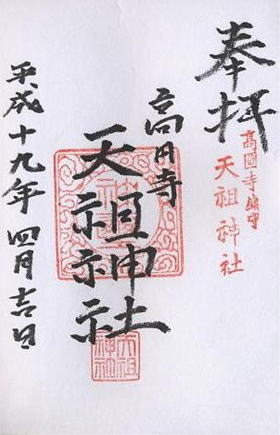 奉拝
高円寺鎮守
天祖神社
高円寺
天祖神社
天祖
神社
平成十九年四月吉日